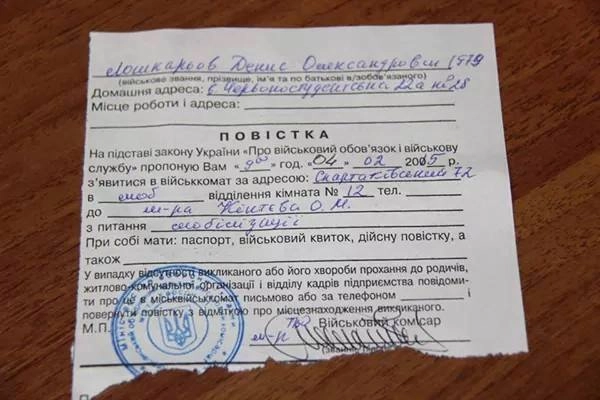 Лошкарьов Денис Олександрович 1979
(військове звання, прізвище, ім'я та по батькові в/зобов'язаного)
Домашня адреса: в. Червоностудентська 22а
Місце роботи і адреса:
ПОВІСТКА
На підставі закону України «Про військовий обов'язок і військову
службу» пропоную Вам « 900 » год. « 04 » 02 2005 р.
з'явитися в військкомат за адресою: 72
в моб відділення кімната № 12 тел.
до м-ра О.М.
з питання мобілізації
При собі мати: паспорт, військовий квиток, дійсну повістку, а
також
У випадку відсутності викликаного або його хвороби прохання до родичів,
житлово-комунальної організації і відділу кадрів підприємства повідоми-
ти про це в міськвійськкомат письмово або за телефоном і
повернути повістку з відміткою про місцезнаходження викликаного.
М.П. Військовий комісар
м-р